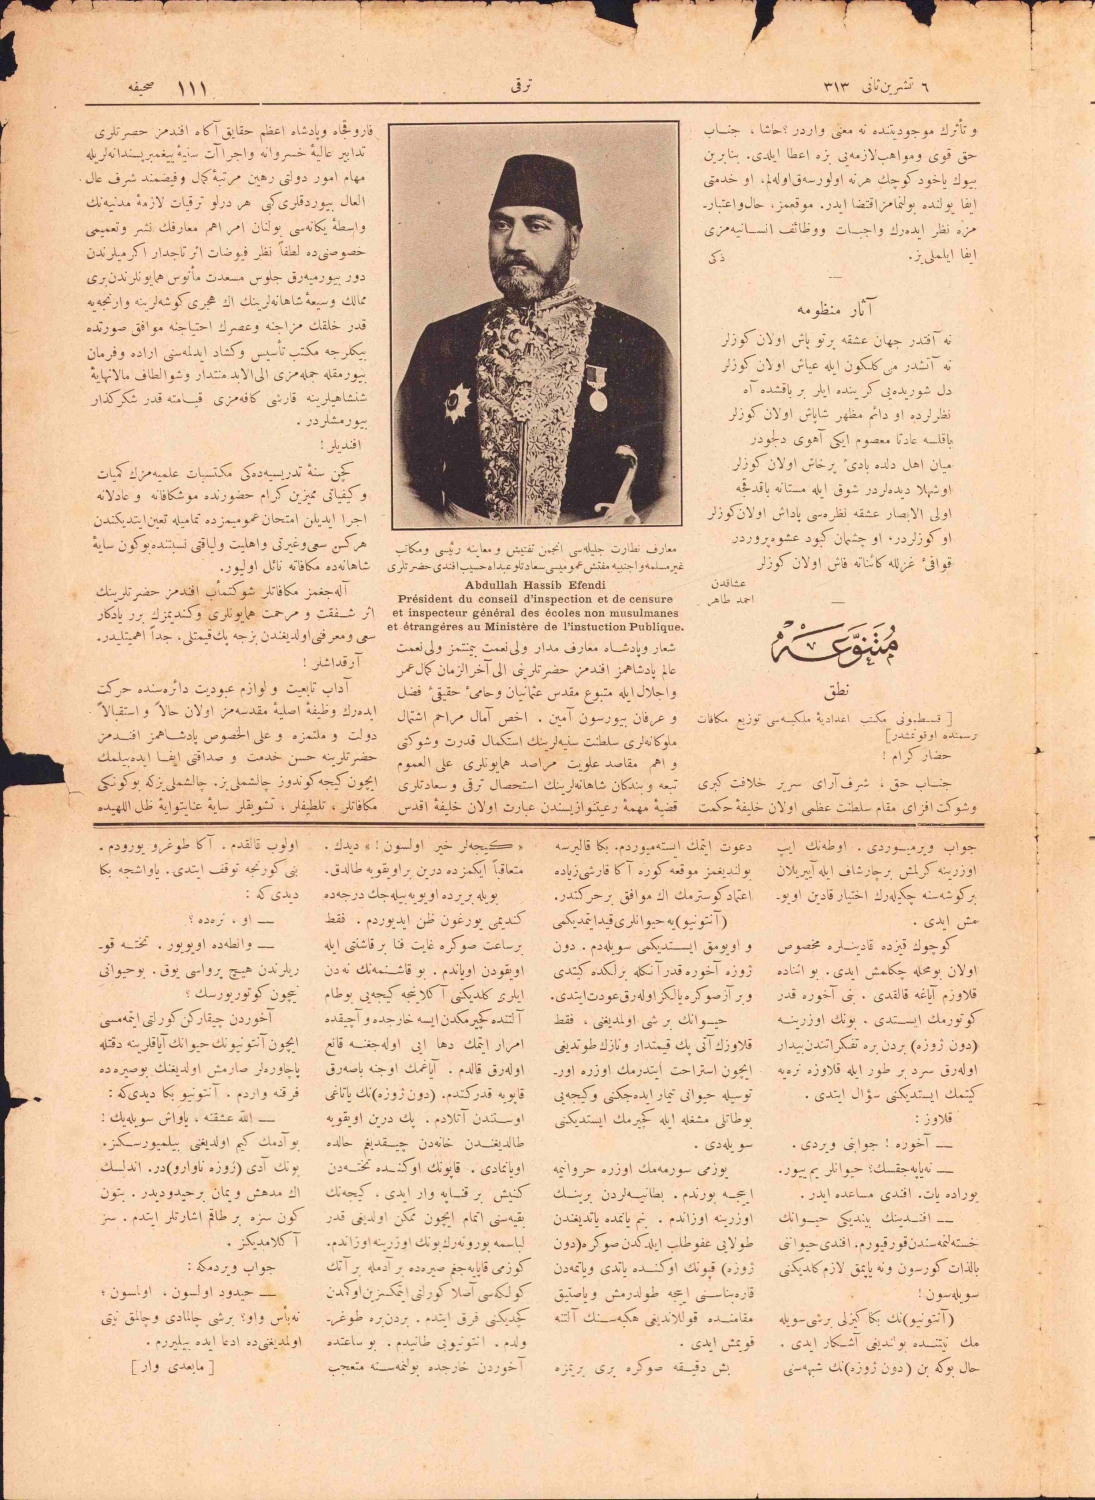 ٦ تشرین ثانی ٣١٣
ترقی
صحیفه ١١١
و تأثرك موجودیتنده نه معنی واردر ؟ حاشا ، جناب
حق قوی ومواهب لازمه‌یی بزه اعطا ایلدی. بنابرین
بیوك یاخود كوچك هرنه اولورسه‌ق اوله‌لم، او خدمتی
ایفا یولنده بولنمامز اقتضا ایدر. موقعمز، حال واعتبار-
مزه نظر ایده‌رك واجبات ووظائف انسانیه‌مزی
ایفا ایلملی‌یز. ذكی
آثار منظومه
نه آفتدر جهان عشقه پرتو پاش اولان كوزلر
نه آتشدر می كلكون ایله عیاش اولان كوزلر
دل شوریده‌یی كریبنده ایلر بر باقشده آه
نظرلرده او دائم مظهر شاباش اولان كوزلر
باقلسه عادتا معصوم ایكی آهوی دلجودر
میان اهل دلده بادیٔ پرخاش اولان كوزلر
اوشهلا دیده‌لردر شوق ایله مستانه باقدقجه
اولی الابصار عشقه نظره‌سی پاداش اولان كوزلر
او كوزلردر، او چشمان كبود عشوه‌پروردر
قوافیٔ غزلله كائناته فاش اولان كوزلر
عشاقدن
احمد طاهر
متنوعه
نطق
[ قسطمونی مكتب اعدادیهٔ ملكیه‌سی توزیع مكافات
رسمنده اوقونمشدر]
حضار كرام !
جناب حق ، شرف‌آرای سریر خلافت كبری
وشوكت افزای مقام سلطنت عظمی اولان خلیفهٔ حكمت
معارف نظارت جلیله‌سی انجمن تفتیش و معاینه رئیسی ومكاتب
غیرمسلمه و اجنبیه مفتش عمومیسی سعادتلو عبدالله حسیب افندی حضرتلری
Abdullah Hassib Efendi
Président du conseil d'inspection et de censure
et inspecteur général des écoles non musulmanes
et étrangéres au Ministére de l'instuction Publique.
شعار وپادشاه معارف مدار ولی نعمت بیمنتمز ولی نعمت
عالم پادشاهمز افندمز حضرتلرینی الی آخر الزمان كمال عمر
و اجلال ایله متبوع مقدس عثمانیان وحامیٔ حقیقیٔ فضل
و عرفان بیورسون آمین . اخص آمال مراحم اشتمال
ملوكانه‌لری سلطنت سنیه‌لرینك استكمال قدرت وشوكتی
و اهم مقاصد علویت مراصد همایونلری علی العموم
تبعه و بندكان شاهانه‌لرینك استحصال ترقی و سعادتلری
قضیهٔ مهمهٔ رعیتنوازیسندن عبارت اولان خلیفهٔ اقدس
فاروقجاه وپادشاه اعظم حقایق آكاه افندمز حضرتلری
تدابیر عالیهٔ خسروانه واجراآت سنیهٔ پیغمبرپسندانه‌لریله
مهام امور دولتی رهین مرتبهٔ كمال وفیضمند شرف عال
العال بیوردقلری كبی هر درلو ترقیات لازمهٔ مدنیه‌نك
واسطهٔ یكانه‌سی بولنان امر اهم معارفك نشر وتعمیمی
خصوصنی‌ده لطفاً نظر فیوضات اثر تاجدار اكرمیلرندن
دور بیورمیه‌رق جلوس مسعدت مأنوس همایونلرندن‌بری
ممالك وسیعهٔ شاهانه‌لرینك اك هجری كوشه‌لرینه وارنجه‌یه
قدر خلقك مزاجنه وعصرك احتیاجنه موافق صورتده
بیكلرجه مكتب تأسیس وكشاد ایدلمه‌سنی اراده وفرمان
بیورمقله جمله‌مزی الی الابد منتدار وشو الطاف مالانهایهٔ
شنشاهیلرینه قارشی كافه‌مزی قیامته قدر شكركذار
بیورمشلردر .
افندیلر !
كچن سنهٔ تدریسیه‌ده‌كی مكتسبات علمیه‌مزك كمیات
و كیفیاتی ممیزین كرام حضورنده موشكافانه و عادلانه
اجرا ایدیلن امتحان عمومیمزده تمامیله تعین ایتدیكندن
هركس سعی وغیرتی واهلیت ولیاقتی نسبتنده بوكون سایهٔ
شاهانه‌ده مكافاته نائل اولیور.
آله‌جغمز مكافاتلر شوكتمأب افندمز حضرتلرینك
اثر شفقت و مرحمت همایونلری وكندیمزك برر یادكار
سعی ومعرفتی اولدیغندن بزجه پك قیمتلی، جداً اهمیتلیدر.
آرقداشلر !
آداب تابعیت و لوازم عبودیت دائره‌سنده حركت
ایده‌رك وظیفهٔ اصلیهٔ مقدسه‌مز اولان حالاً و استقبالاً
دولت و ملتمزه و علی الخصوص پادشاهمز افندمز
حضرتلرینه حسن خدمت و صداقتی ایفا ایده‌بیلمك
ایچون كیجه كوندوز چالشملی‌یز. چالشملی‌یزكه بوكونكی
مكافاتلر ، تلطیفلر ، تشویقلر سایهٔ عنایتوایهٔ ظل اللهیده
جواب ویرمیوردی . اوطه‌نك ایپ
اوزرینه كرلمش بر چارشاف ایله آییریلان
بركوشه‌سنه چكیله‌رك اختیار قادین اویو-
مش ایدی .
كوچوك قیزده قادینلره مخصوص
اولان بومحله چكلمش ایدی. بو اثناده
قلاوزم آیاغه قالقدی . بنی آخوره قدر
كوتورمك ایستدی . بونك اوزرینه
(دون ژوزه) بردن بره تفكراتندن بیدار
اوله‌رق سرد بر طور ایله قلاوزه نره‌یه
كیتمك ایستدیكنی سؤال ایتدی .
قلاوز :
— آخوره ! جوابنی ویردی .
— نه‌یاپه‌جقسك؟ حیوانلر یم ییور.
بوراده یات. افندی مساعده ایدر .
— افندینك بیندیكی حیوانك
خسته‌لنمه‌سندن قورقیورم. افندی حیوانی
بالذات كورسون ونه یاپمق لازم كلدیكنی
سویله‌سون !
(آنتونیو)نك بكا كیزلی برشی سویله
مك نیتنده بولندیغی آشكار ایدی .
حال بوكه بن (دون ژوزه)نك شبهه‌سنی
دعوت ایتمك ایسته‌میوردم. بكا قالیرسه
بولندیغمز موقعه كوره آكا قارشی زیاده
اعتماد كوسترمك اك موافق بر حركتدر.
(آنتونیو)یه حیوانلری قید ایتمدیكمی
و اویومق ایستدیكمی سویله‌دم . دون
ژوزه آخوره قدر آنكله برلكده كیتدی
وبر آز صوكره یالكز اوله‌رق عودت ایتدی.
حیوانك بر شی اولمدیغنی ، فقط
قلاوزك آتی پك قیمتدار ونازك طوتدیغی
ایچون استراحت ایتدرمك اوزره اور-
توسیله حیوانی تیمار ایده‌جكنی وكیجه‌یی
بوطاتلی مشغله ایله كچیرمك ایستدیكنی
سویله‌دی.
یوزمی سورمه‌مك اوزره حروانیمه
اییجه بورندم . بطانیه‌لردن برینك
اوزرینه اوزاندم . بنم یانمده یاتدیغندن
طولایی عفو طلب ایلدكدن صوكره (دون
ژوزه) قپونك اوكنده یاتدی ویاتمه‌دن
قاره‌بناسنی اییجه طولدرمش ویاصتیق
مقامنده قوللاندیغی هكبه‌سنك آلتنه
قویمش ایدی .
بش دقیقه صوكره بری بریمزه
« كیجه‌لر خیر اولسون ! » دیدك .
متعاقباً ایكیمزده درین بر اویقویه طالدق.
بویله بریرده اویویه‌بیله‌جك درجه‌ده
كندیمی یورغون ظن ایدیوردم . فقط
برساعت صوكره غایت فنا بر قاشنتی ایله
اویقودن اویاندم . بو قاشنمه‌نك نه‌دن
ایلری كلدیكنی آكلانجه كیجه‌یی بوطام
آلتنده كچیرمكدن ایسه خارجده و آچیقده
امرار ایتمك دها ایی اوله‌جغنه قانع
اوله‌رق قالدم . آیاغمك اوجنه باصه‌رق
قاپویه قدر كتدم. (دون ژوزه)نك یاتاغی
اوستندن آتلادم . پك درین اویقویه
طالدیغندن خانه‌دن چیقدیغم حالده
اویانمادی . قاپونك اوكنده تخته‌دن
كنیش بر قناپه وار ایدی . كیجه‌نك
بقیه‌سنی اتمام ایچون ممكن اولدیغی قدر
لباسمه بورونه‌رك بونك اوزرینه اوزاندم.
كوزمی قاپایه‌جغم صیره‌ده بر آدمله بر آتك
كولكه‌سی آصلا كورلتی ایتمكسزین اوكمدن
كچدیكنی فرق ایتدم . بردن بره طوغر-
ولدم . انتونیویی طانیدم . بو ساعتده
آخوردن خارجده بولنمه‌سنه متعجب
اولوب قالقدم . آكا طوغرو یورودم .
بنی كورنجه توقف ایتدی. یاواشجه بكا
دیدی كه :
— او ، نره‌ده ؟
— وانطه‌ده اویویور . تخته قو-
ریلرندن هیچ پرواسی یوق . بوحیوانی
نیچون كوتوریورسك ؟
آخوردن چیقاركن كورلتی ایتمه‌مسی
ایچون آنتونیونك حیوانك آیاقلرینه دقتله
پاچاوره‌لر صارمش اولدیغنك بوصیره‌ده
فرقنه واردم . آنتونیو بكا دیدی كه :
— الله عشقنه ، یاواش سویله‌یك !
بو آدمك كیم اولدیغنی بیلمیورسكز.
بونك آدی (ژوزه ناوارو)در. اندلسك
اك مدهش ویمان برحیدودیدر . بتون
كون سزه بر طاقم اشارتلر ایتدم . سز
آكلامدیكز .
جواب ویردمكه :
— حیدود اولسون ، اولمسون ؛
نه‌بأس وار؟ برشی چالمادی وچالمق نیتی
اولمدیغنی‌ده ادعا ایده بیلیررم.
[ مابعدی وار ]